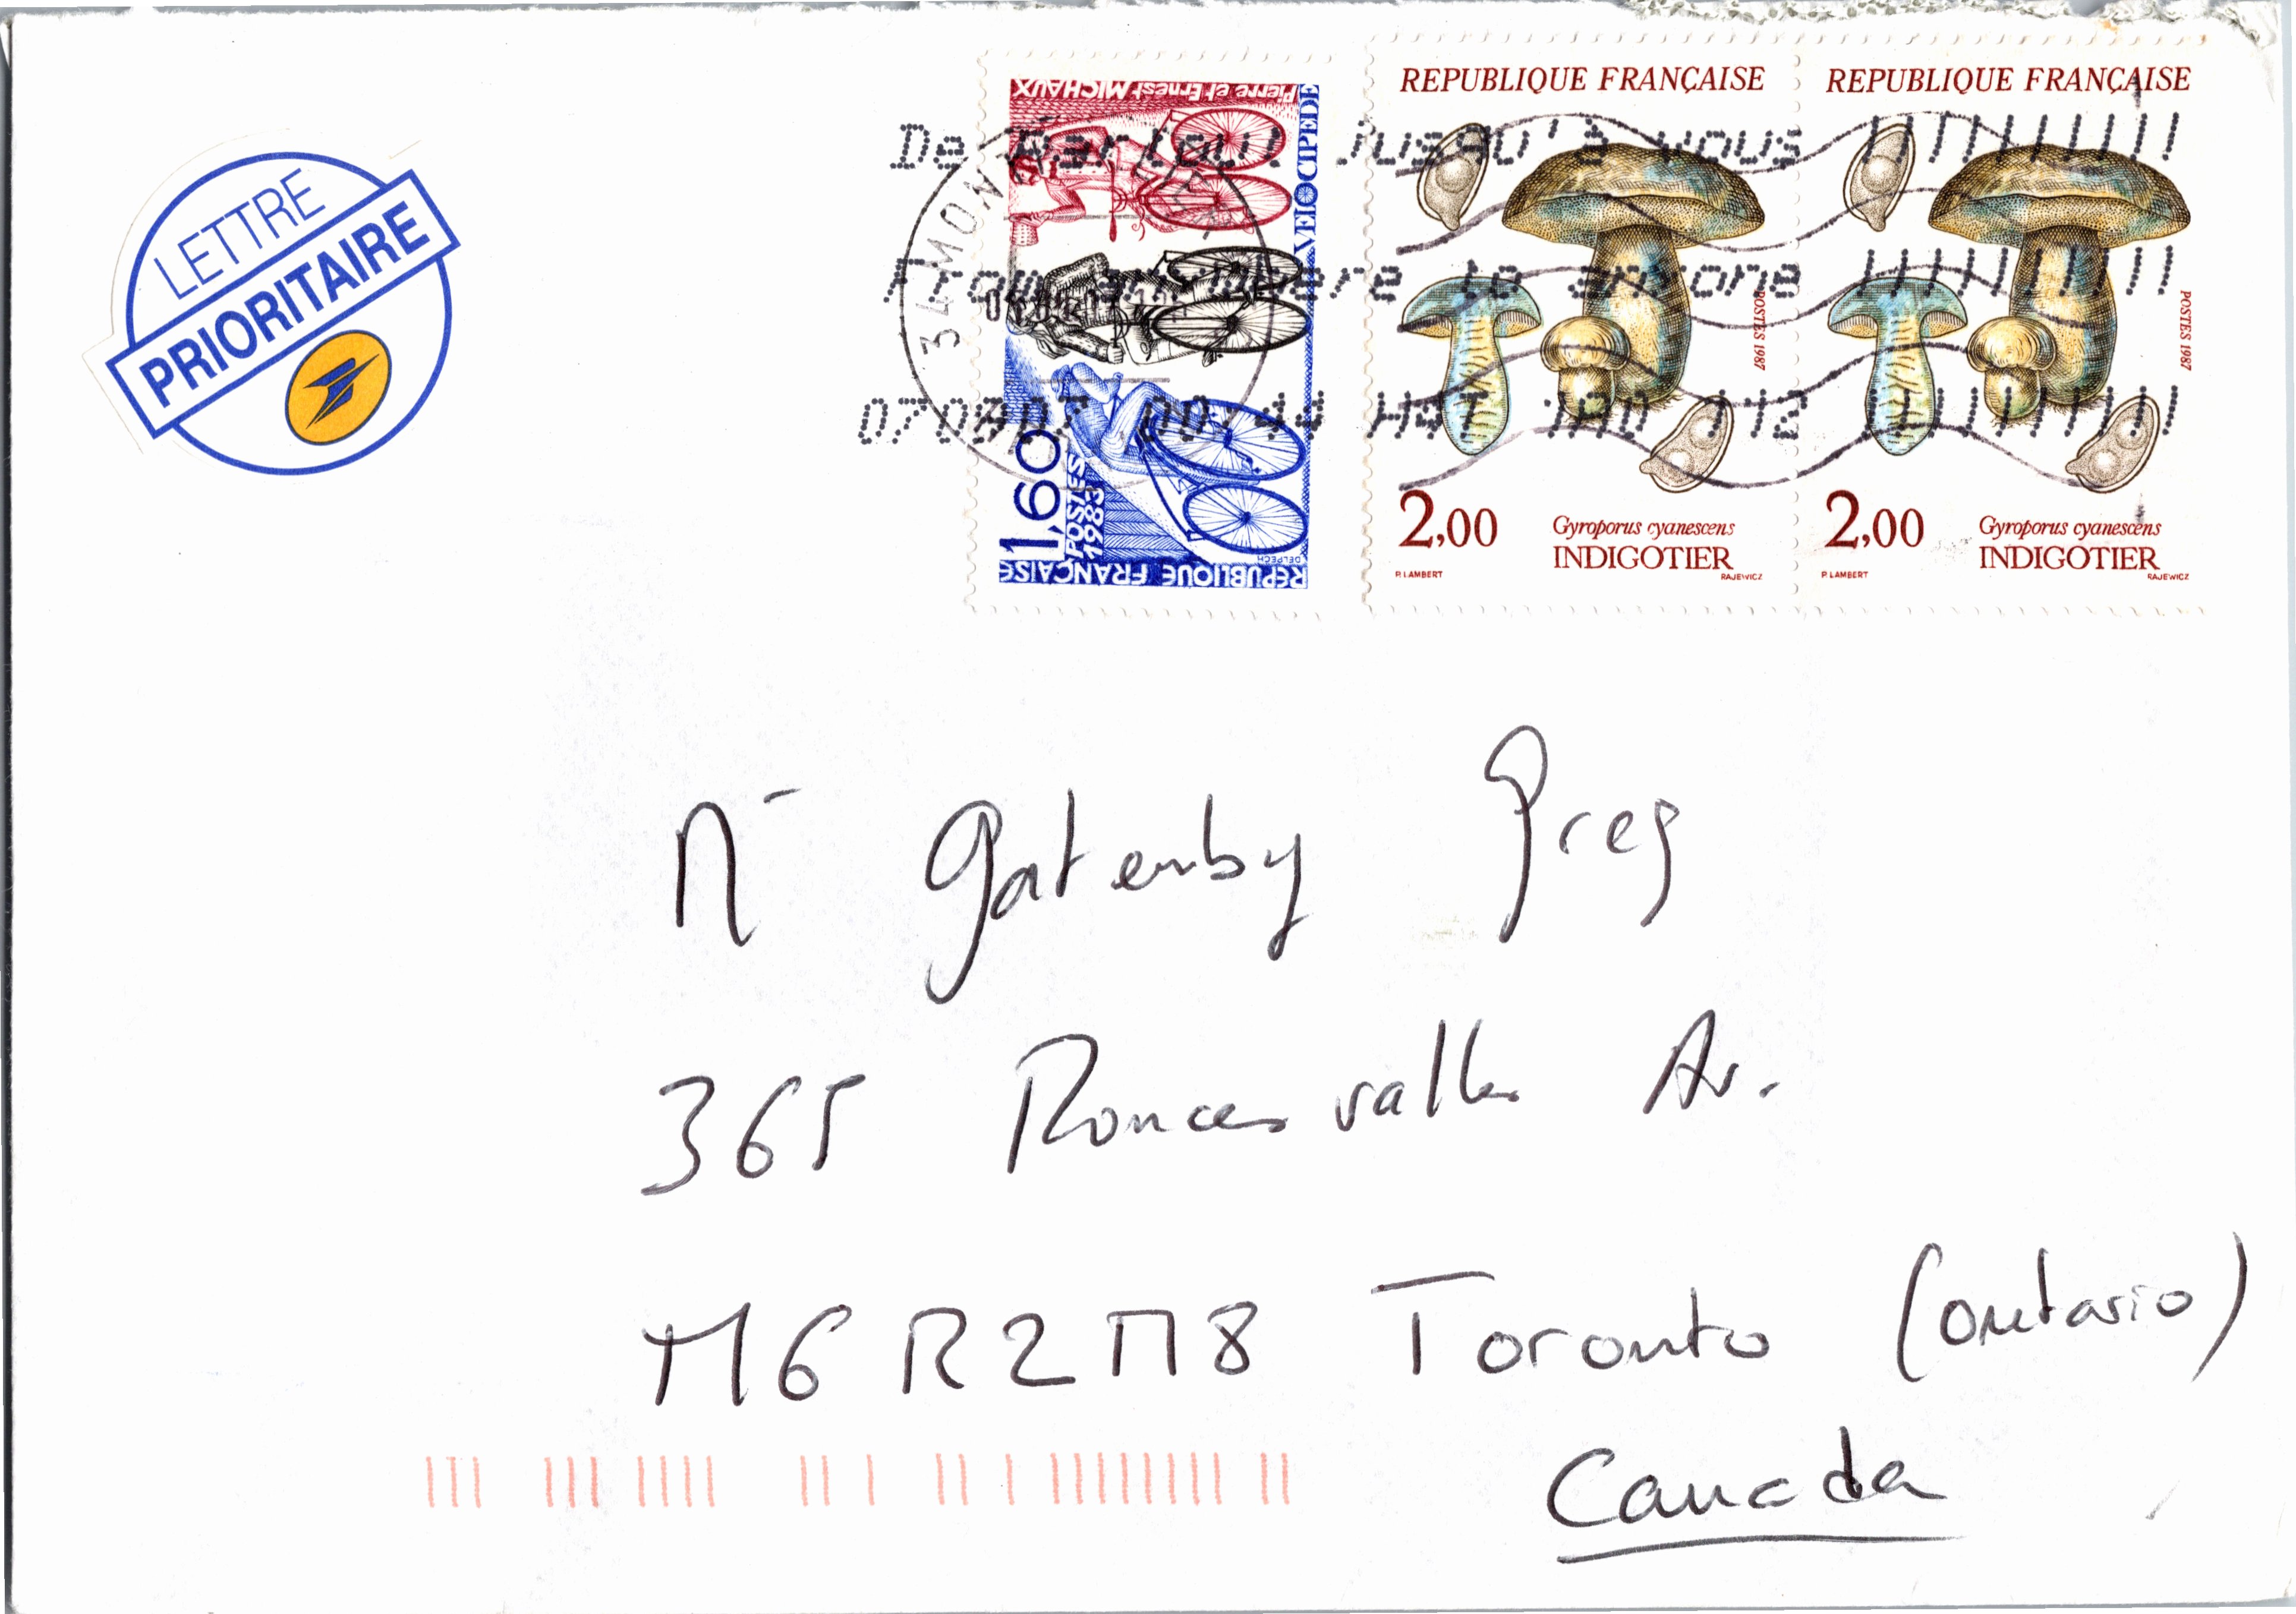 LETTRE
PRIORITAIRE
Pierre et Ernest MICHAUX
VELOCIPEDE
1,60
POSTES
1983
REPUBLIQUE FRANÇAISE
DELPECH
REPUBLIQUE FRANÇAISE
POSTES 1987
2,00
Gyroporus cyanescens
INDIGOTIER
P. LAMBERT
RAJEWICZ
REPUBLIQUE FRANÇAISE
POSTES 1987
2,00
Gyroporus cyanescens
INDIGOTIER
P. LAMBERT
RAJEWICZ
De Partout Jusqu'à vous
From anywhere to anyone
34 MON
Mr Gatenby Greg
365 Roncesvalles Av.
M6R2M8 Toronto (Ontario)
Canada